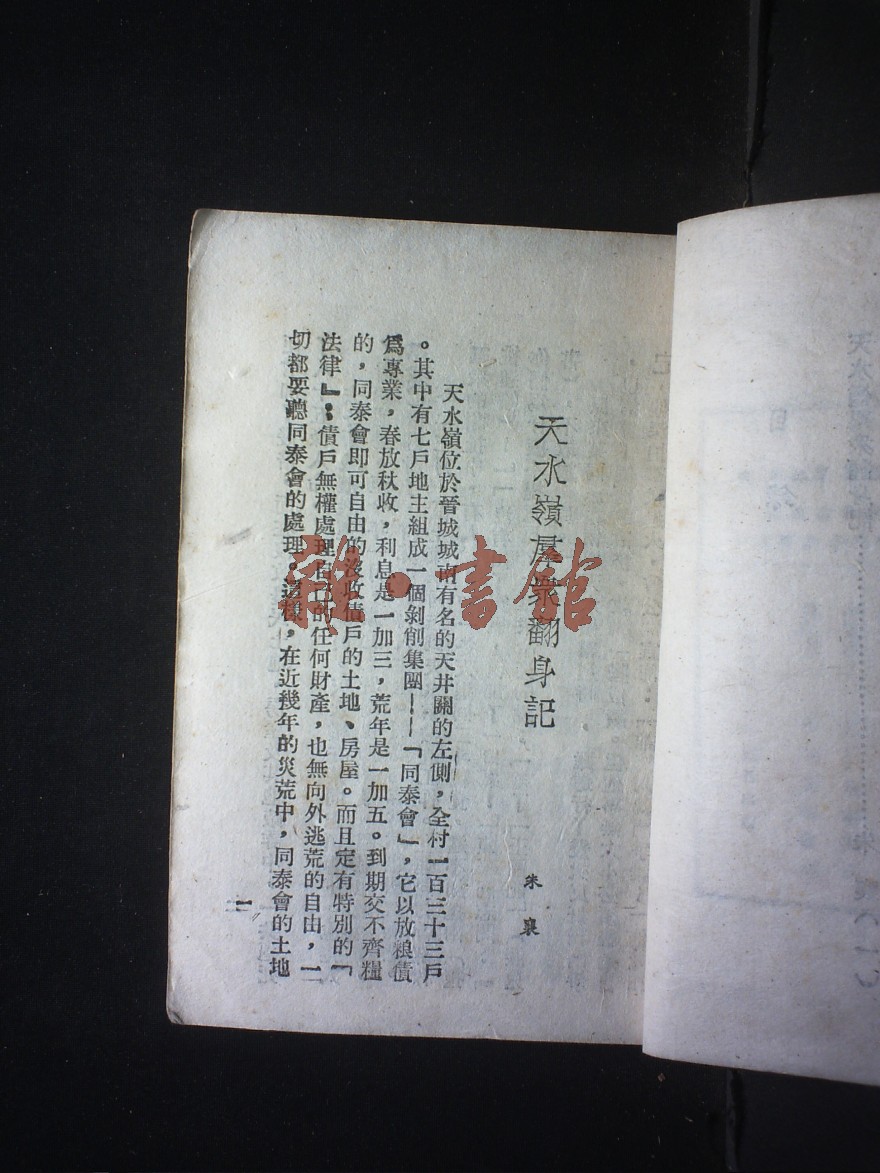 天水嶺羣衆翻身記
朱襄
天水嶺位於晉城城南有名的天井關的左側，全村一百三十三戶
。其中有七戶地主組成一個剝削集團——「同泰會」，它以放粮債
爲專業，春放秋收，利息是一加三，荒年是一加五。到期交不齊糧
的，同泰會即可自由的沒收債戶的土地、房屋。而且定有特別的「
法律』：債戶無權處理自己的任何財產，也無向外逃荒的自由，一
切都要聽同泰會的處理。這樣，在近幾年的災荒中，同泰會的土地
一
雜·書館